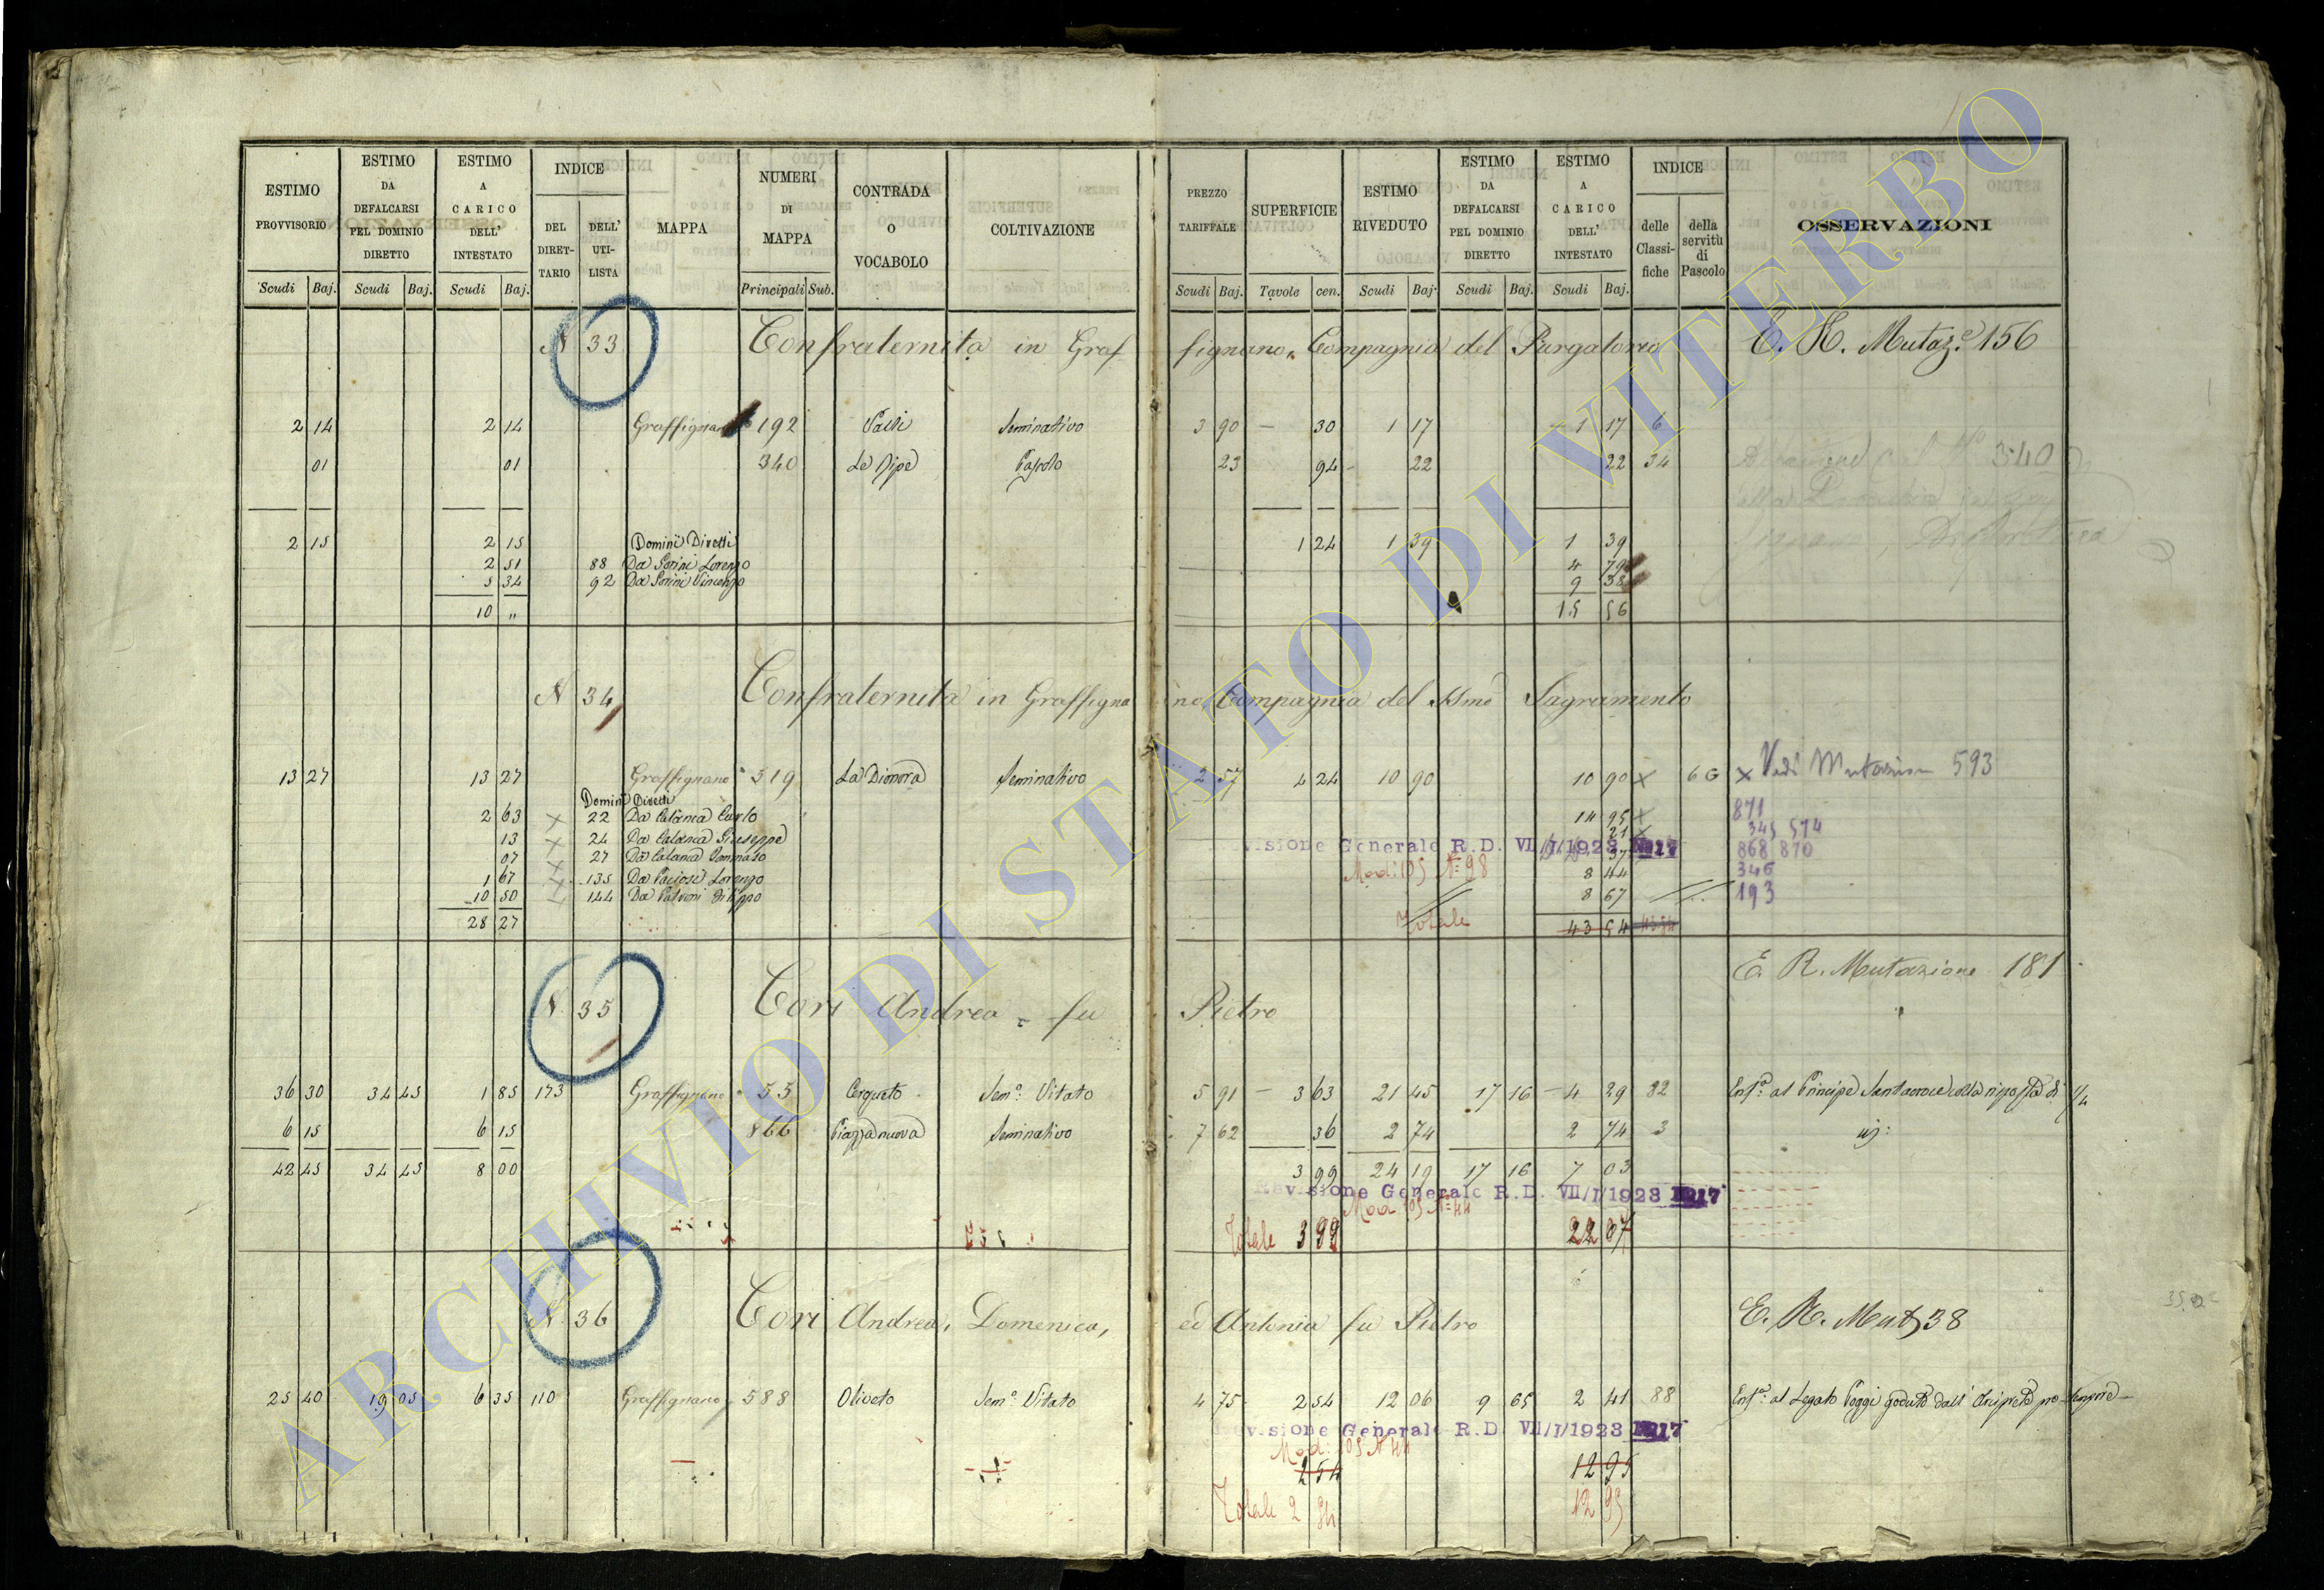 ESTIMO PROVVISORIO | ESTIMO DA DEFALCARSI PEL DOMINIO DIRETTO | ESTIMO A CARICO DELL' INTESTATO | INDICE DEL DIRETTARIO | DELL' UTILISTA | MAPPA | NUMERI DI MAPPA | CONTRADA O VOCABOLO | COLTIVAZIONE | PREZZO TARIFFALE | SUPERFICIE | ESTIMO RIVEDUTO | ESTIMO DA DEFALCARSI PEL DOMINIO DIRETTO | ESTIMO A CARICO DELL' INTESTATO | INDICE delle Classifiche | della servitù di Pascolo | OSSERVAZIONI
Scudi Baj. Scudi Baj. Scudi Baj. Principali Sub. Scudi Baj. Tavole cen. Scudi Baj. Scudi Baj. Scudi Baj.
N 33 Confraternita in Graffignano, Compagnia del Purgatorio E. R. Mutaz.e 156
2 14 2 14 Graffignano 192 Seminativo 3 90 — 30 1 17 1 17 6
01 01 340 Le Ripe Pascolo 23 94 22 22 34
2 15 2 15 Domini Diretti 1 24 1 39 1 39
2 51 88 Da Sorini Lorenzo 4 79
5 34 92 Da Sorini Vincenzo 9 38
10 „ 15 56
N 34 Confraternita in Graffignano Compagnia del SSmo Sagramento
13 27 13 27 Graffignano 519 La Dionora Seminativo 2 57 4 24 10 90 10 90 x 6 G x Vedi Mutazione 593
Domini Diretti
2 63 x 22 Da Catania Carlo 14 95 x 871
13 x 24 Da Catania Giuseppe 21 x 345 574
07 x 27 Da Catania Tommaso Revisione Generale R.D. VII/I/1923 N 17 37 868 870
1 67 x 135 Da Paciosi Lorenzo Mod: 105 N= 98 8 44 346
10 50 144 Da Filippo 8 67 193
28 27 Totale 43 54
E. R. Mutazione 181
N. 35 Cori Andrea = fu Pietro
36 30 34 45 1 85 173 Graffignano 55 Cerqueto Sem.o Vitato 5 91 — 3 63 21 45 17 16 — 4 29 82 Enf.a al Principe Santacroce colla risposta di 1/4
6 15 6 15 866 Piazza nuova Seminativo 7 62 36 2 74 2 74 3
42 45 34 45 8 00 3 99 24 19 17 16 7 03
Revisione Generale R.D. VII/I/1923 N 17
Mod 105 N= 44
Totale 3 99 22 07
N. 36 Cori Andrea, Domenica, ed Antonia fu Pietro E. R. Mut 38
25 40 19 05 6 35 110 Graffignano 588 Oliveto Sem.o Vitato 4 75 2 54 12 06 9 65 2 41 88 Enf.a al Legato Poggi goduto dall' Arciprete pro tempore
Revisione Generale R.D. VII/I/1923 N 17
Mod: 105 N 44
2 54 12 95
Totale 2 54 12 95
ARCHIVIO DI STATO DI VITERBO